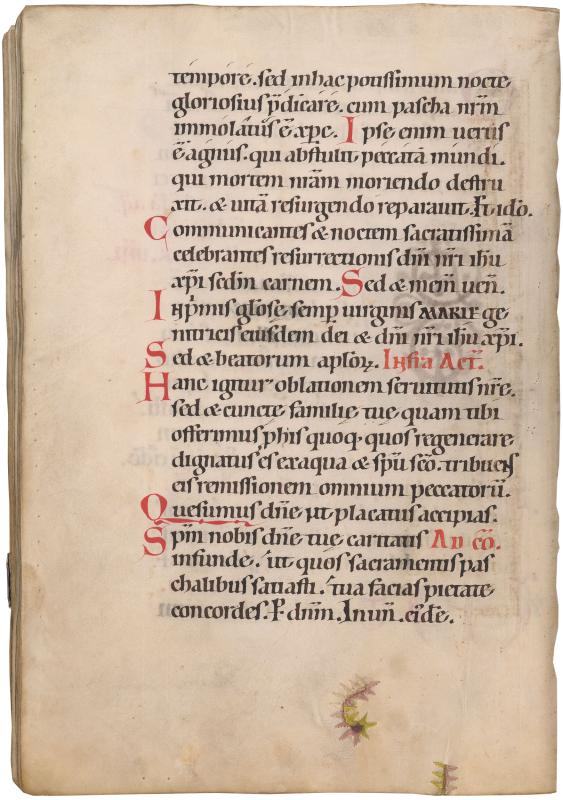 tempore. sed in hac potissimum nocte
gloriosius p̄dicare. cum pascha nr̄m
immolatus ē xp̄c. Ipse enim uerus
ē agnus. qui abstulit peccata mundi.
qui mortem nr̄am moriendo destru
xit. & uitā resurgendo reparauit. Et idō.
Communicantes & noctem sacratissimā
celebrantes resurrectionis dn̄i nr̄i ih̄u
xp̄i sedm̄ carnem. Sed & mem̄ uen̄.
Inp̄mis glōse semp̄ uirginis MARIE ge
nitricis eiusdem dei & dn̄i nr̄i ih̄u xp̄i.
Sed & beatorum aplōꝝ. Infra Act̄.
Hanc igitur oblationem seruitutis nr̄e.
sed & cuncte familie tue quam tibi
offerimus p̄ his quoq; quos regenerare
dignatus es ex aqua & sp̄u scō. tribuens
eis remissionem omnium peccatorū.
Quesumus dn̄e ut placatus accipias.
Sp̄m nobis dn̄e tue caritatis Ad cō.
infunde. ut quos sacramentis pas
chalibus satiasti. tua facias pietate
concordes. P̄ dnm̄. In un̄. eiꝰdē.